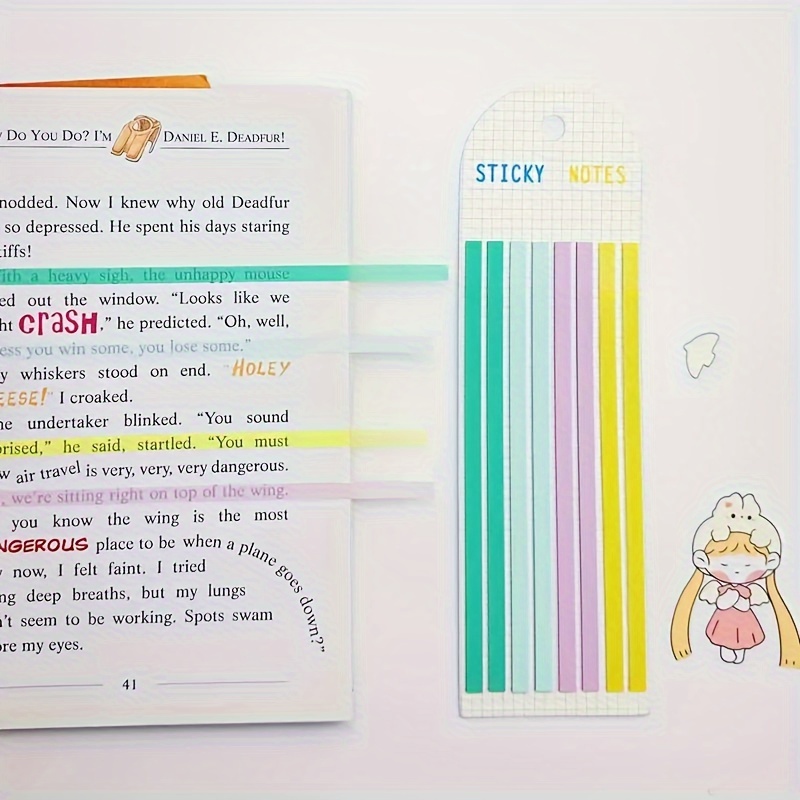 Do You Do? I'm Daniel E. Deadfur!
nodded. Now I knew why old Deadfur
so depressed. He spent his days staring
iffs!
ith a heavy sigh, the unhappy mouse
ed out the window. “Looks like we
ht crash,” he predicted. “Oh, well,
ess you win some, you lose some.”
y whiskers stood on end. “Holey
eese!” I croaked.
he undertaker blinked. “You sound
prised,” he said, startled. “You must
w air travel is very, very, very dangerous.
, we're sitting right on top of the wing.
you know the wing is the most
ngerous place to be when a plane goes down?”
now, I felt faint. I tried
ng deep breaths, but my lungs
n't seem to be working. Spots swam
ore my eyes.
41
STICKY NOTES